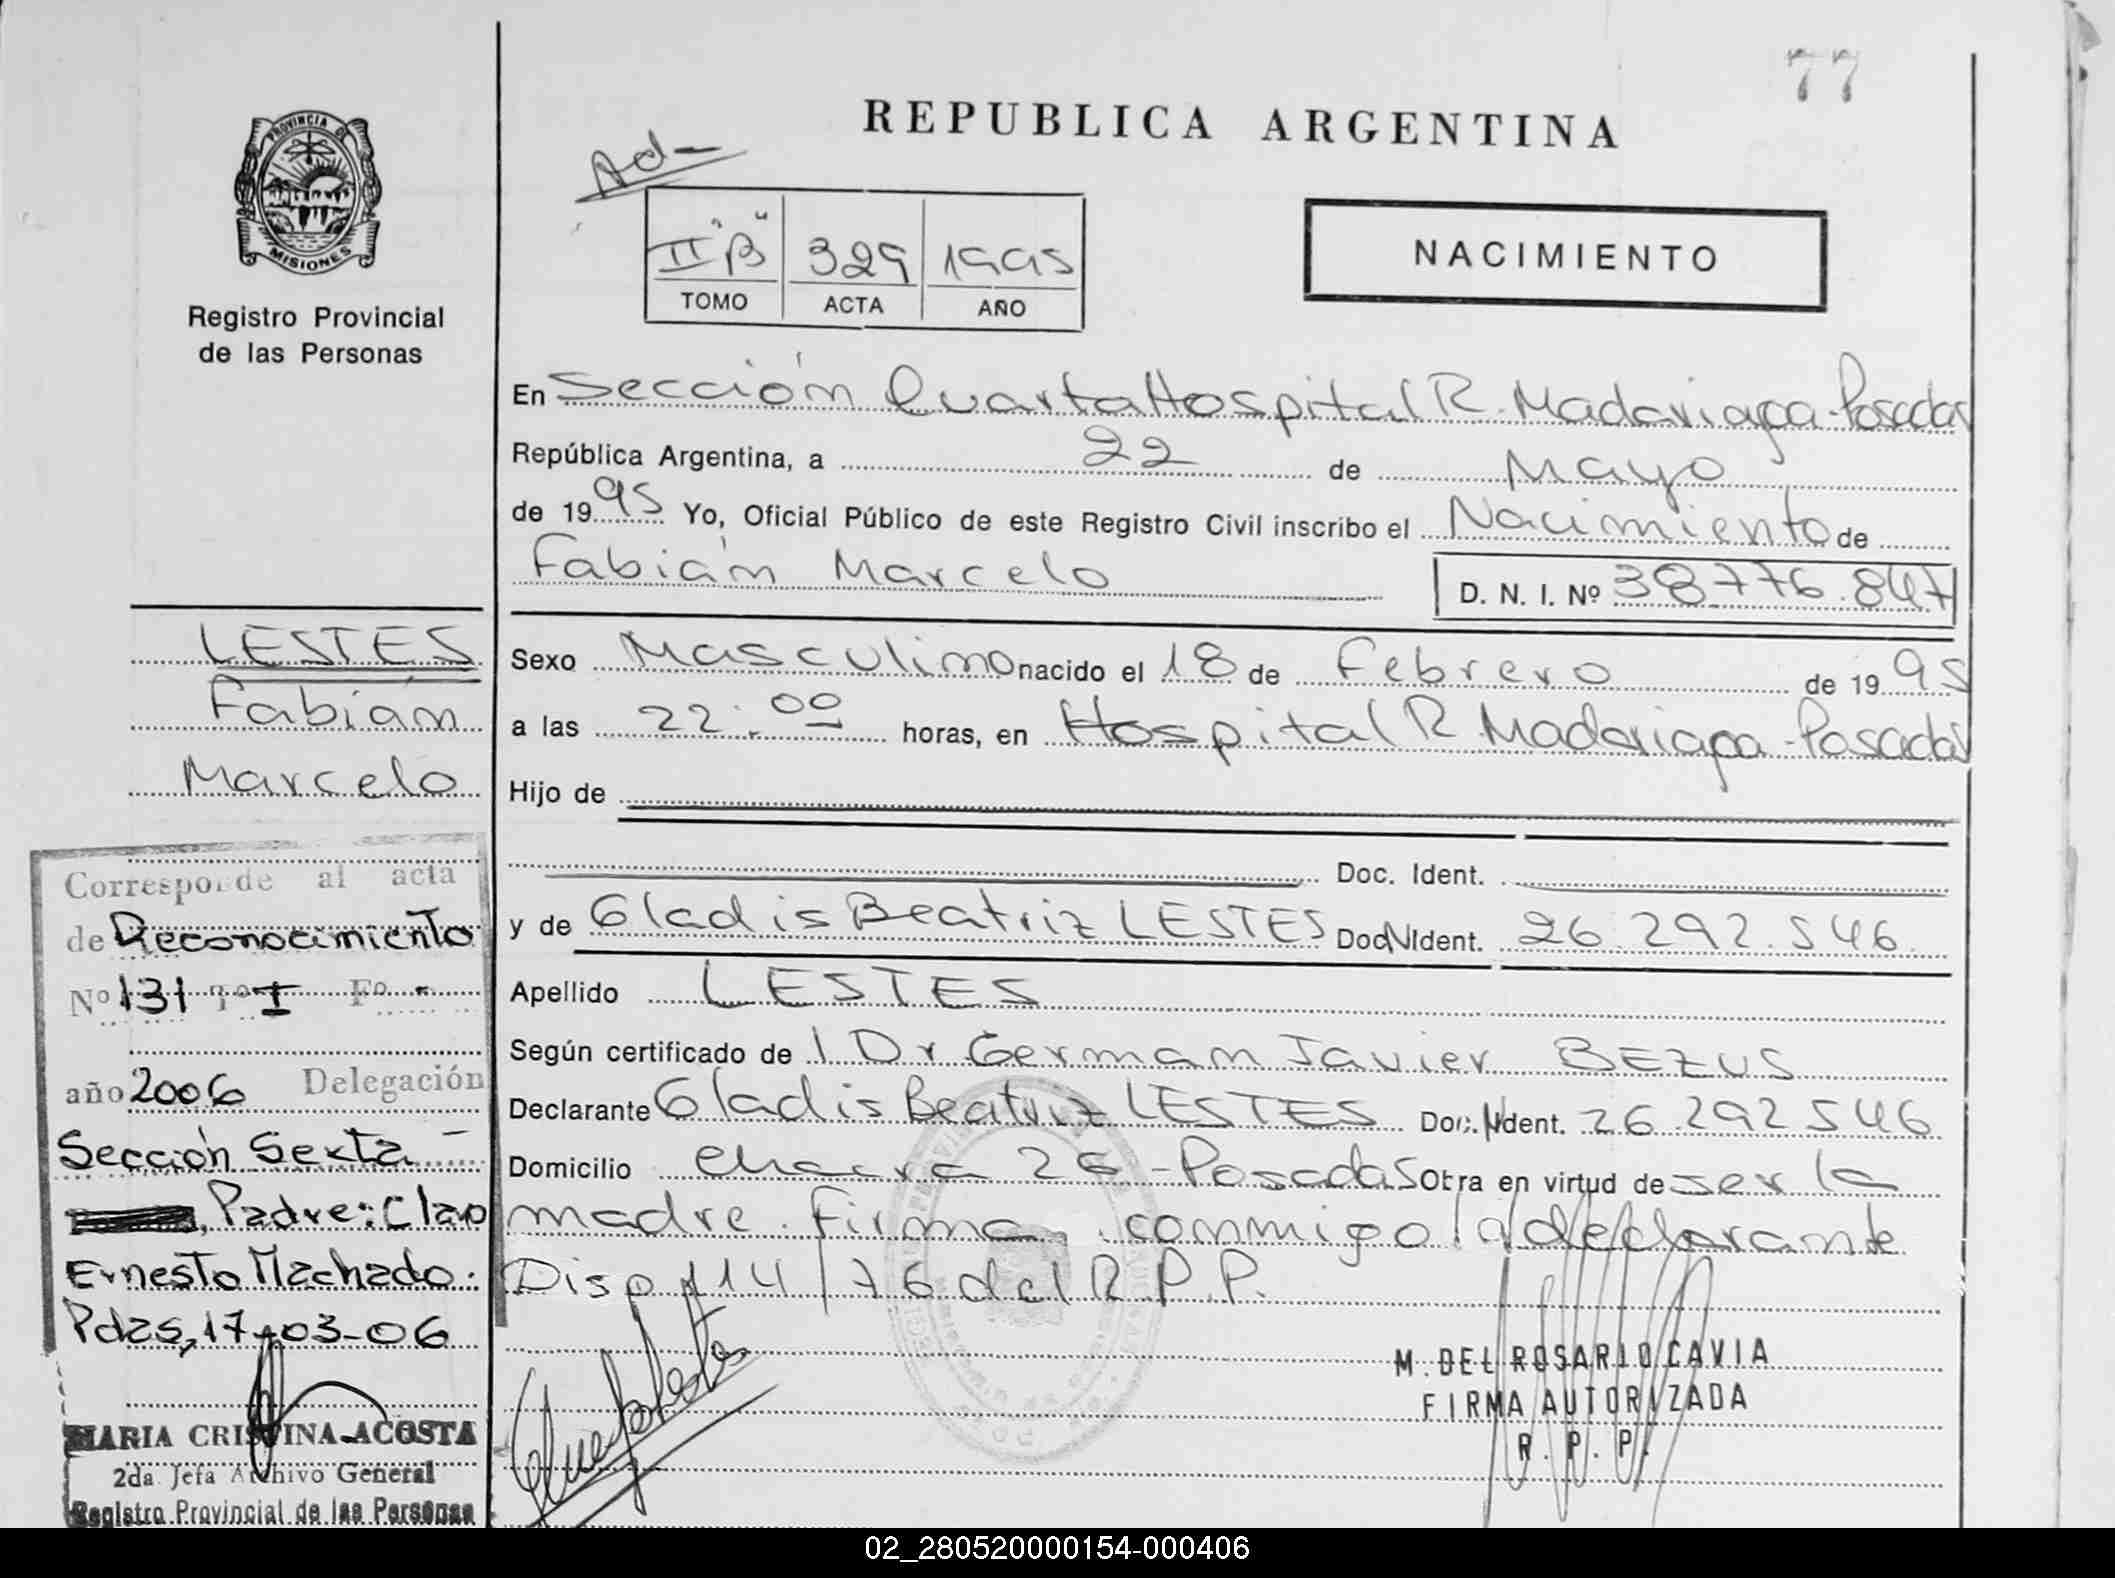 77
REPUBLICA ARGENTINA
Ad-
PROVINCIA DE
MISIONES
Registro Provincial
de las Personas
II "B" 329 1995
TOMO ACTA AÑO
NACIMIENTO
En Sección Quarta Hospital R. Madariaga - Posadas
República Argentina, a 22 de Mayo
de 1995 Yo, Oficial Público de este Registro Civil inscribo el Nacimiento de
Fabián Marcelo
D. N. I. Nº 38776.847
LESTES
Fabián
Marcelo
Sexo Masculino nacido el 18 de Febrero de 1995
a las 22:00 horas, en Hospital R Madariaga - Posadas
Hijo de
Doc. Ident.
y de Gladis Beatriz LESTES Doc. Ident. 26.292.546
Apellido LESTES
Según certificado de l Dr German Javier BEZUS
Declarante Gladis Beatriz LESTES Doc. Ident. 26.292 546
Domicilio chacra 26 - Posadas Obra en virtud de ser la
madre. Firma conmigo la declarante
Disp 114/76 del R.P.P.
Corresponde al acta
de Reconocimiento
Nº 131 Tº I Fº -
año 2006 Delegación
Sección Sexta -
Padre: Claro
Ernesto Machado.
Pdas, 17-03-06
MARIA CRISTINA ACOSTA
2da. Jefa Archivo General
Registro Provincial de las Personas
M. DEL ROSARIO CAVIA
FIRMA AUTORIZADA
R. P. P.
02_280520000154-000406